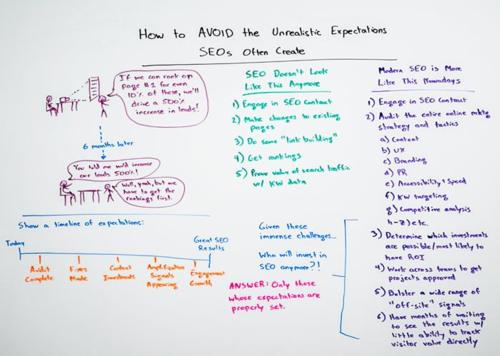 How to AVOID the Unrealistic Expectations
SEOs Often Create
If we can rank on
page #1 for even
10% of these, we'll
drive a 500%
increase in leads!
6 months later
You told me we'd increase
our leads 500%!
Well, yeah, but we
have to get the
rankings first.
Show a timeline of expectations:
Today
Great SEO
Results
Audit
Complete
Fixes
Made
Content
Investments
Amplification
Signals
Appearing
Engagement
Growth
SEO Doesn't Look
Like This Anymore
1) Engage in SEO Contract
2) Make changes to existing
pages
3) Do some "link building"
4) Get rankings
5) Prove value of search traffic
w/ KW data
Given these
immense challenges...
Who will invest in
SEO anymore?!
ANSWER: Only those
whose expectations are
properly set.
Modern SEO is More
Like This Nowadays
1) Engage in SEO Contract
2) Audit the entire online mktg
strategy and tactics
a) Content
b) UX
c) Branding
d) PR
e) Accessibility + Speed
f) KW targeting
g) Competitive analysis
h-z) etc.
3) Determine which investments
are possible/most likely to
have ROI
4) Work across teams to get
projects approved
5) Bolster a wide range of
"off-site" signals
6) Have months of waiting
to see the results w/
little ability to track
visitor value directly